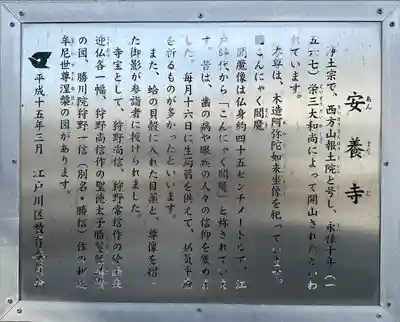 安養寺
あんようじ
浄土宗で、西方山報土院と号し、永禄十年（一
五六七）栄三大和尚によって開山されたといわ
れています。
本尊は、木造阿弥陀如来坐像を祀っています。
こんにゃく閻魔
閻魔像は仏身約四十五センチメートルで、江
戸時代から「こんにゃく閻魔」と称されていま
す。昔は、歯の病や眼疾の人々の信仰を集めま
した。毎月十六日に生蒟蒻を供えて、病気平癒
を祈るものが多かったといいます。
また、蛤の貝殻に入れた目薬と、尊像を摺っ
た御影が参詣者に授けられました。
寺宝として、狩野尚信、狩野常信作の
迎仏各一幅、狩野尚信作の聖徳太子勝鬘経
の図、勝川院狩野一信（別名・勝信）作の釈迦
牟尼世尊涅槃の図があります。
平成十五年三月 江戸川区教育委員会